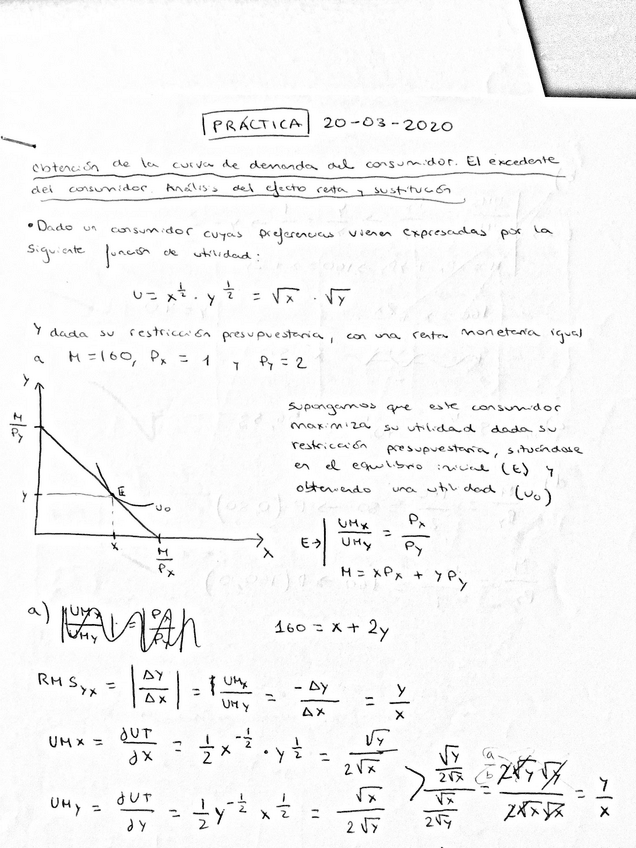 PRÁCTICA 20-03-2020
Obtención de la curva de demanda del consumidor. El excedente
del consumidor. Análisis del efecto renta y sustitución
• Dado un consumidor cuyas preferencias vienen expresadas por la
siguiente función de utilidad:
U = x^{1/2} · y^{1/2} = √x · √y
Y dada su restricción presupuestaria, con una renta monetaria igual
a M=160, Px = 1 y Py = 2
Y
M/Py
y
E
U₀
x
M/Px
X
Supongamos que este consumidor
maximiza su utilidad dada su
restricción presupuestaria, situándose
en el equilibrio inicial (E) y
obteniendo una utilidad (U₀)
E→ | UMx/UMy = Px/Py
M = xPx + yPy
a) 160 = x + 2y
RMS_{yx} = |Δy/Δx| = UMx/UMy = -Δy/Δx = y/x
UMx = ∂UT/∂x = 1/2 x^{-1/2} · y^{1/2} = √y/2√x
UMy = ∂UT/∂y = 1/2 y^{-1/2} x^{1/2} = √x/2√y
(√y/2√x)/(√x/2√y) = 2√y√y/2√x√x = y/x